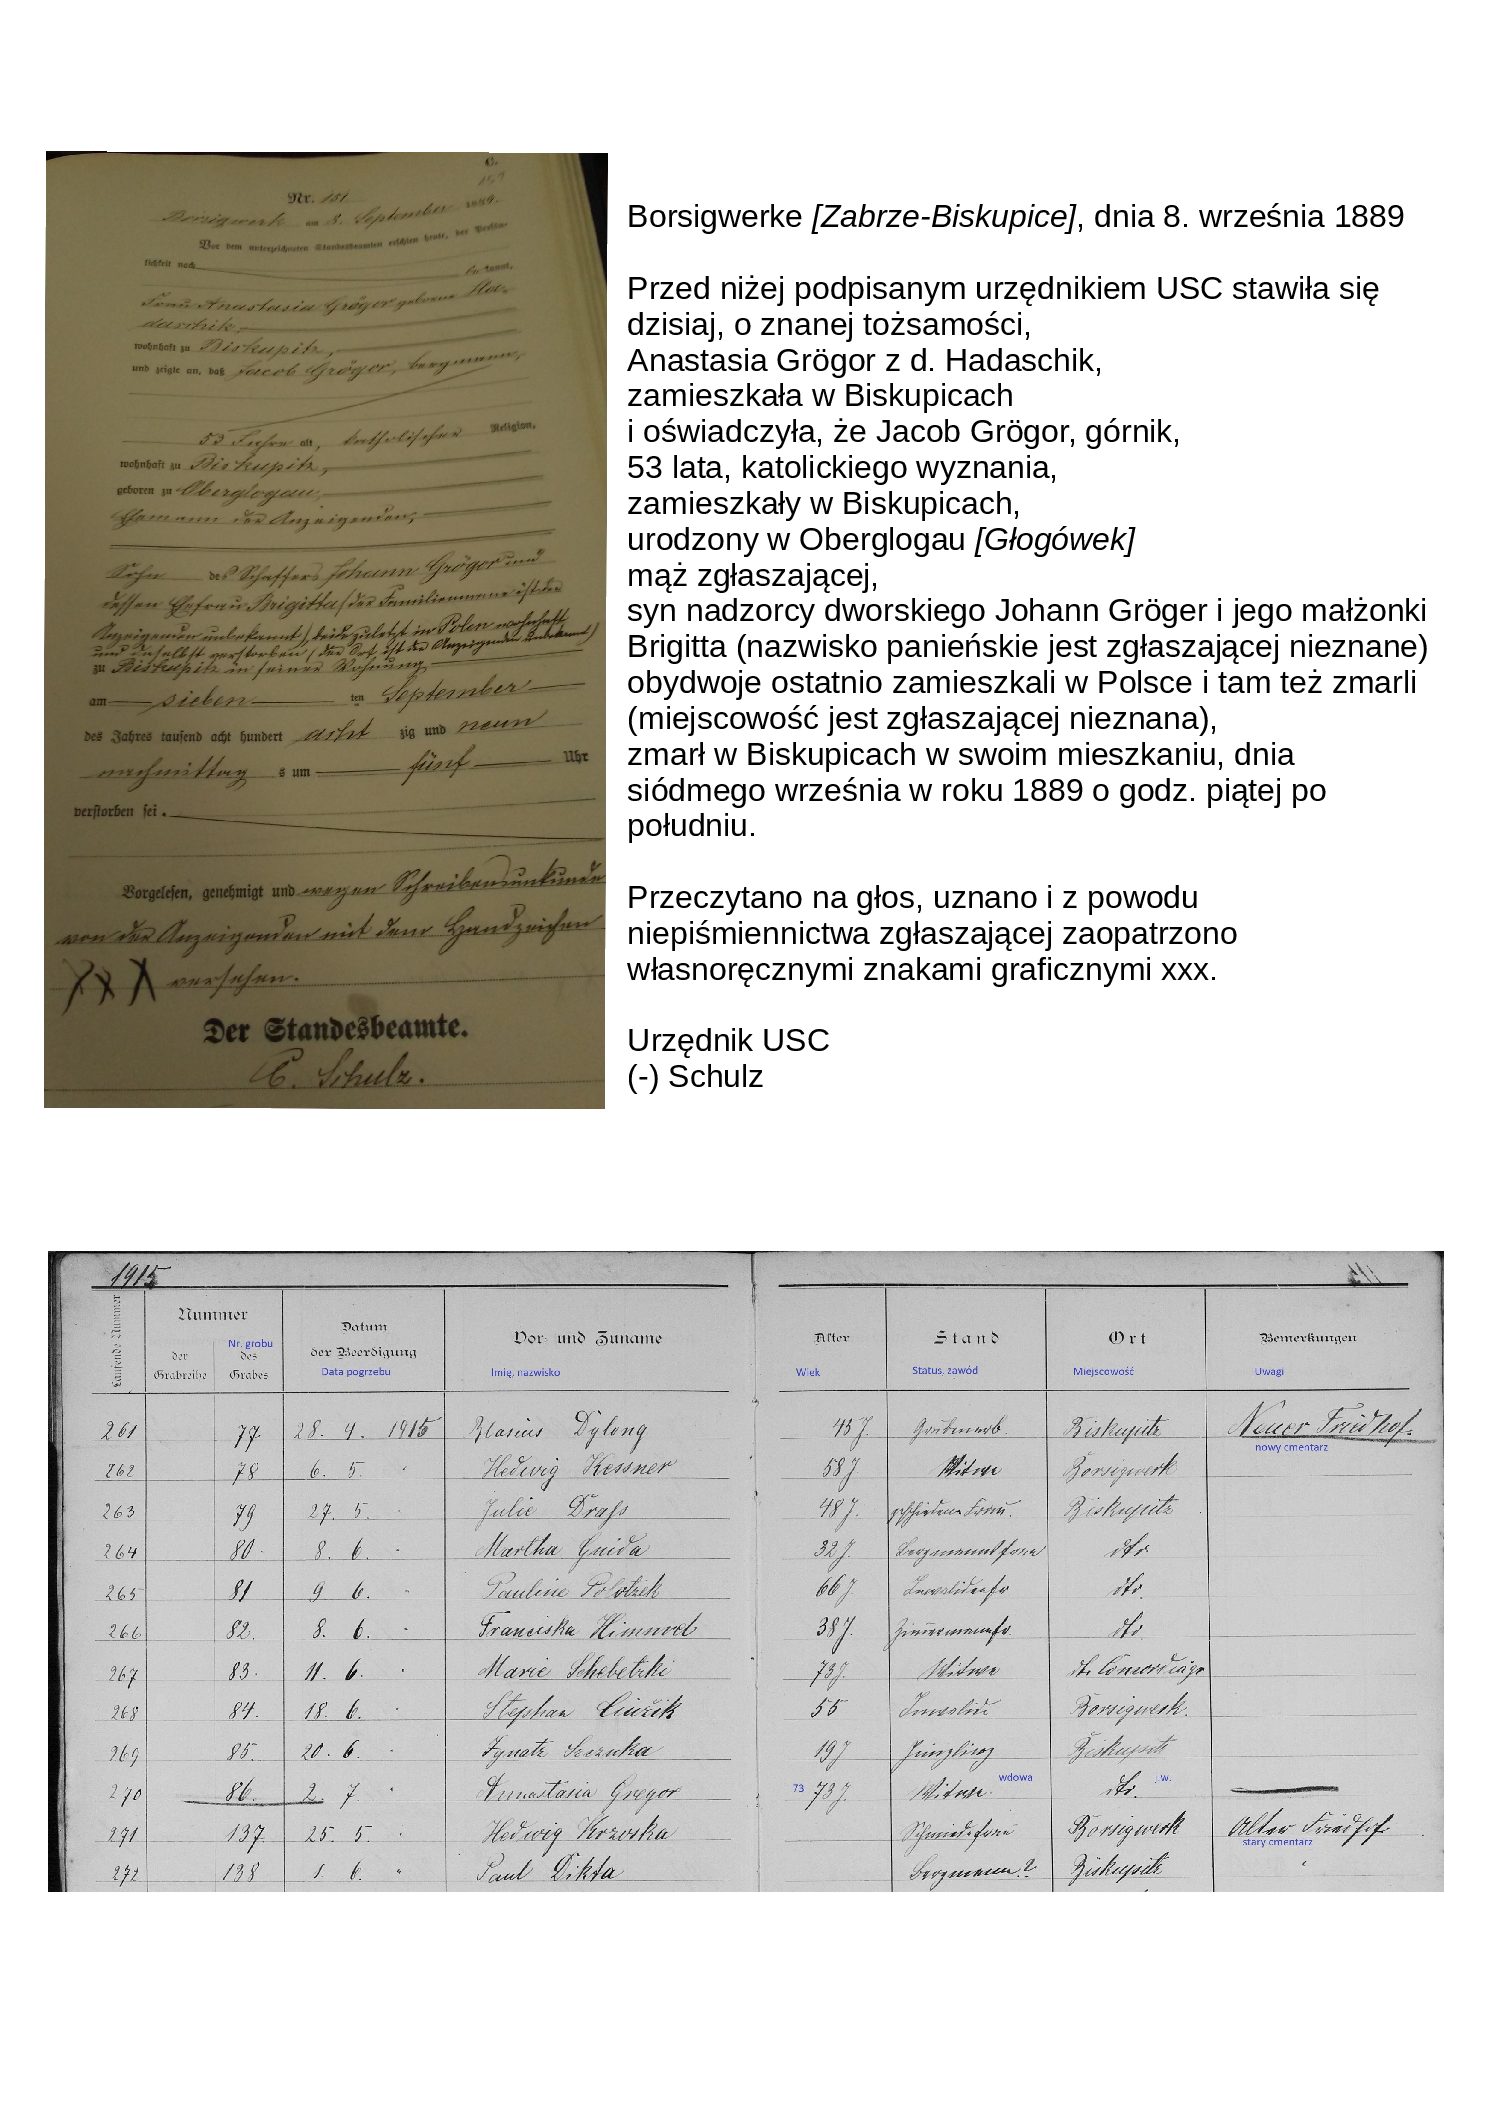 C.
Nr. 151
Borsigwerk am 8. September 1889.
Vor dem unterzeichneten Standesbeamten erschien heute, der Persön-
lichkeit nach
be kannt,
Frau Anastasia Gröger geborene Ha-
daschik,
wohnhaft zu Biskupitz,
und zeigte an, daß Jacob Gröger, Bergmann,
53 Jahre alt, katholischer Religion,
wohnhaft zu Biskupitz,
geboren zu Oberglogau,
Ehemann der Anzeigenden,
Sohn des Schaffers Johann Gröger und
dessen Ehefrau Brigitta (der Familienname ist der
Anzeigenden unbekannt) beide zuletzt in Polen wohnhaft
und daselbst verstorben (der Ort ist der Anzeigenden unbekannt)
zu Biskupitz in seiner Wohnung
am sieben ten September
des Jahres tausend acht hundert acht zig und neun
nachmittag s um fünf Uhr
verstorben sei.
Vorgelesen, genehmigt und wegen Schreibensunkunde
von der Anzeigenden mit dem Handzeichen
XXX versehen.
Der Standesbeamte.
C. Schulz.
Borsigwerke [Zabrze-Biskupice], dnia 8. września 1889
Przed niżej podpisanym urzędnikiem USC stawiła się
dzisiaj, o znanej tożsamości,
Anastasia Grögor z d. Hadaschik,
zamieszkała w Biskupicach
i oświadczyła, że Jacob Grögor, górnik,
53 lata, katolickiego wyznania,
zamieszkały w Biskupicach,
urodzony w Oberglogau [Głogówek]
mąż zgłaszającej,
syn nadzorcy dworskiego Johann Gröger i jego małżonki
Brigitta (nazwisko panieńskie jest zgłaszającej nieznane)
obydwoje ostatnio zamieszkali w Polsce i tam też zmarli
(miejscowość jest zgłaszającej nieznana),
zmarł w Biskupicach w swoim mieszkaniu, dnia
siódmego września w roku 1889 o godz. piątej po
południu.
Przeczytano na głos, uznano i z powodu
niepiśmiennictwa zgłaszającej zaopatrzono
własnoręcznymi znakami graficznymi xxx.
Urzędnik USC
(-) Schulz
1915
Laufende Nummer Nummer Datum der Beerdigung Vor- und Zuname Alter Stand Ort Bemerkungen
der Grabreihe Nr. grobu des Grabes Data pogrzebu Imię, nazwisko Wiek Status, zawód Miejscowość Uwagi
261 77 28. 4. 1915 Blasius Dylong 43 J. Grubenarb. Biskupitz Neuer Friedhof.
nowy cmentarz
262 78 6. 5. " Hedwig Kessner 58 J Witwe Borsigwerk
263 79 27. 5. " Julie Drass 48 J. geschiedene Frau. Biskupitz
264 80 8. 6. " Martha Gaida 32 J. Bergmannsfrau dto.
265 81 9 6. " Pauline Polotzek 66 J Invalidenfr dto.
266 82. 8. 6. " Franciska 38 J. Zimmermannfr. dto.
267 83. 11. 6. " Marie Schebetzki 73 J. Witwe
268 84. 18. 6. " Stephan 55 Invalide Borsigwerk.
269 85. 20. 6. " Ignatz 19 J Jüngling Biskupitz
270 86. 2. 7 " Annastasia Gregor 73 73 J. Witwe. wdowa dto. j.w.
271 137 25. 5. " Hedwig Kozoska Schmiedefrau Borsigwerk Alter Friedhof.
stary cmentarz
272 138 1. 6. " Paul Dikta Bergmann? Biskupitz "